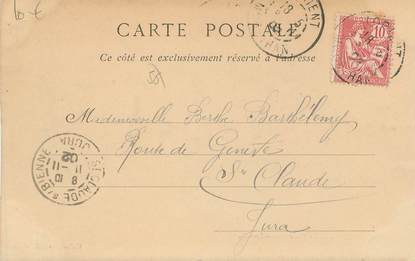 10 €
CARTE POSTALE
Ce côté est exclusivement réservé à l'adresse
10
Mademoiselle Berthe Barthélemy
Route de Genève
St Claude
Jura
ST CLAUDE S/BIENNE
JURA